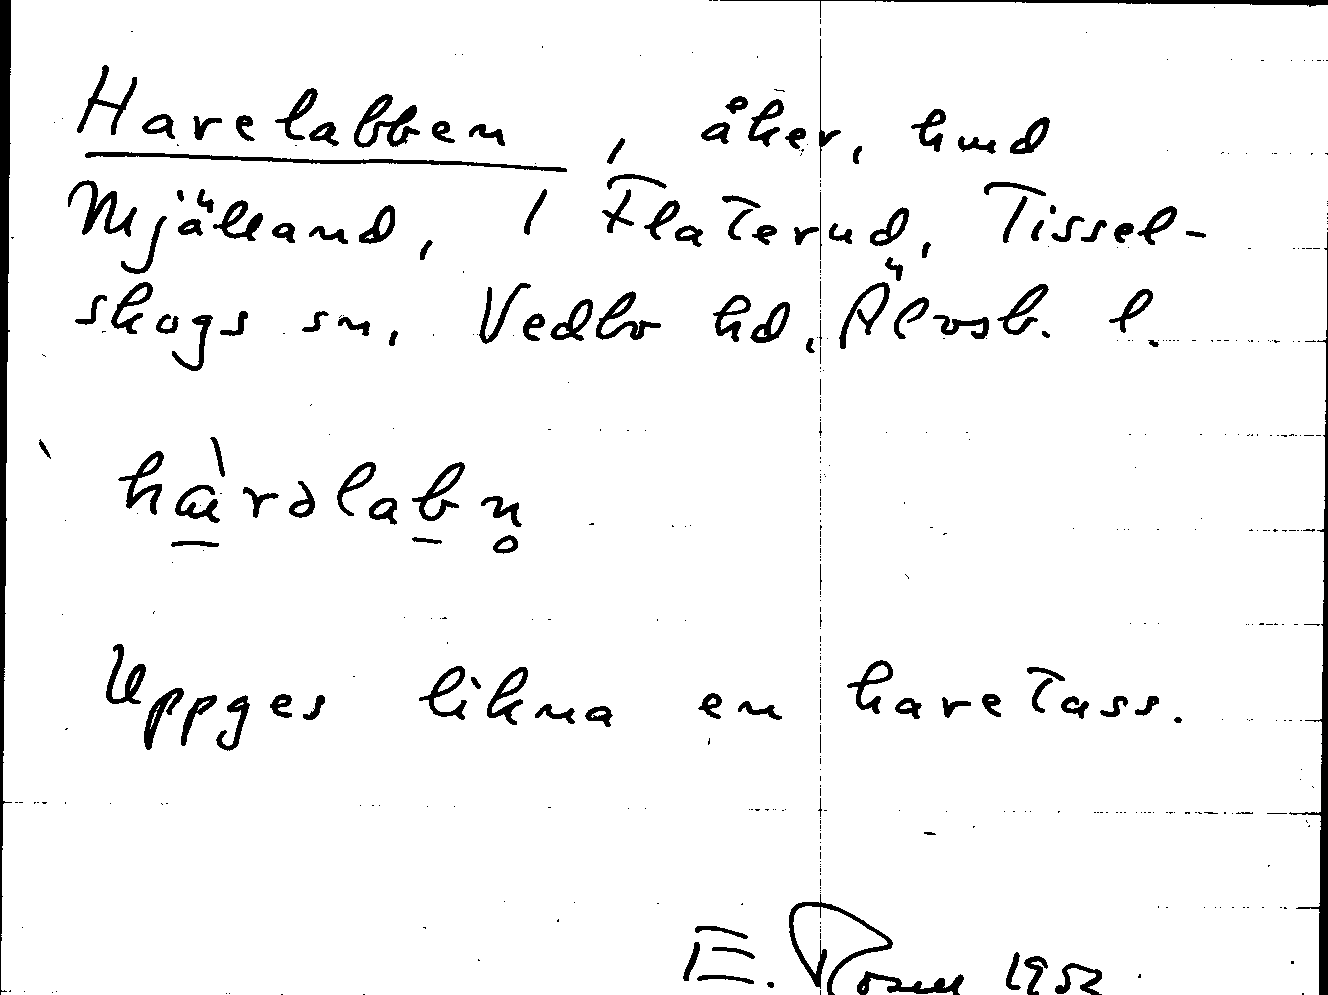 Harelabben, åker, hmd
Mjälland, 1 Flaterud, Tissel-
skogs sn, Vedbo hd, Älvsb. l.
hàrəlabn̥
Uppges likna en haretass.
E. Rosell 1952